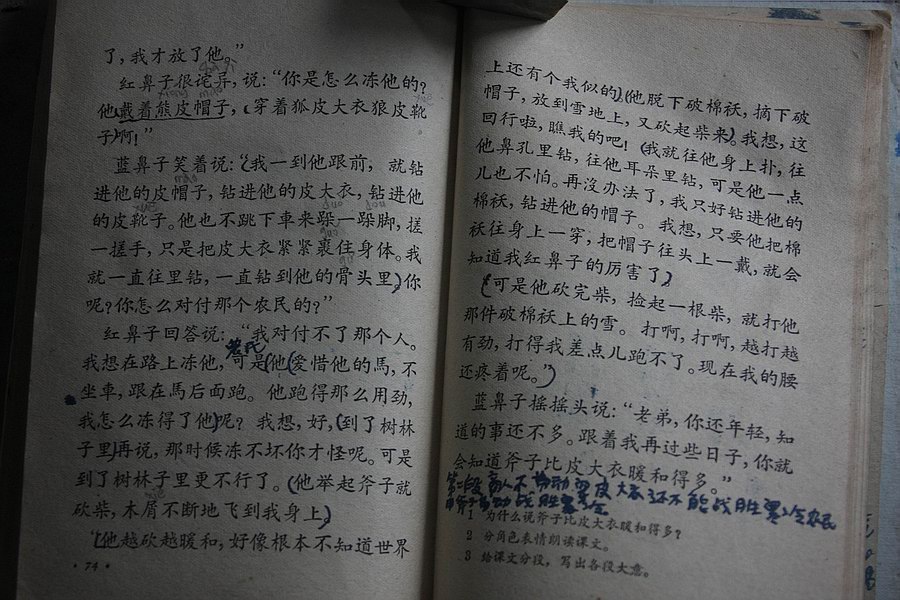 了，我才放了他。”
红鼻子很诧异，说：“你是怎么冻他的？
他戴着熊皮帽子，穿着狐皮大衣狼皮靴
子啊！”
蓝鼻子笑着说：“我一到他跟前，就钻
进他的皮帽子，钻进他的皮大衣，钻进他
的皮靴子。他也不跳下車来跺一跺脚，搓
一搓手，只是把皮大衣紧紧裹住身体。我
就一直往里钻，一直钻到他的骨头里，你
呢？你怎么对付那个农民的？”
红鼻子回答说：“我对付不了那个人。
我想在路上冻他，可是他爱惜他的馬，不
坐車，跟在馬后面跑。他跑得那么用劲，
我怎么冻得了他呢？我想，好，到了树林
子里再说，那时候冻不坏你才怪呢。可是
到了树林子里更不行了。他举起斧子就
砍柴，木屑不断地飞到我身上，
他越砍越暖和，好像根本不知道世界
·74·
上还有个我似的。他脱下破棉袄，摘下破
帽子，放到雪地上，又砍起柴来。我想，这
回行啦，瞧我的吧！我就往他身上扑，往
他鼻孔里钻，往他耳朵里钻，可是他一点
儿也不怕。再沒办法了，我只好钻进他的
棉袄，钻进他的帽子。我想，只要他把棉
袄往身上一穿，把帽子往头上一戴，就会
知道我红鼻子的厉害了，
可是他砍完柴，捡起一根柴，就打他
那件破棉袄上的雪。打啊，打啊，越打越
有劲，打得我差点儿跑不了。现在我的腰
还疼着呢。”
蓝鼻子摇摇头说：“老弟，你还年轻，知
道的事还不多。跟着我再过些日子，你就
会知道斧子比皮大衣暖和得多。”
1 为什么说斧子比皮大衣暖和得多？
2 分角色表情朗读课文。
3 给课文分段，写出各段大意。